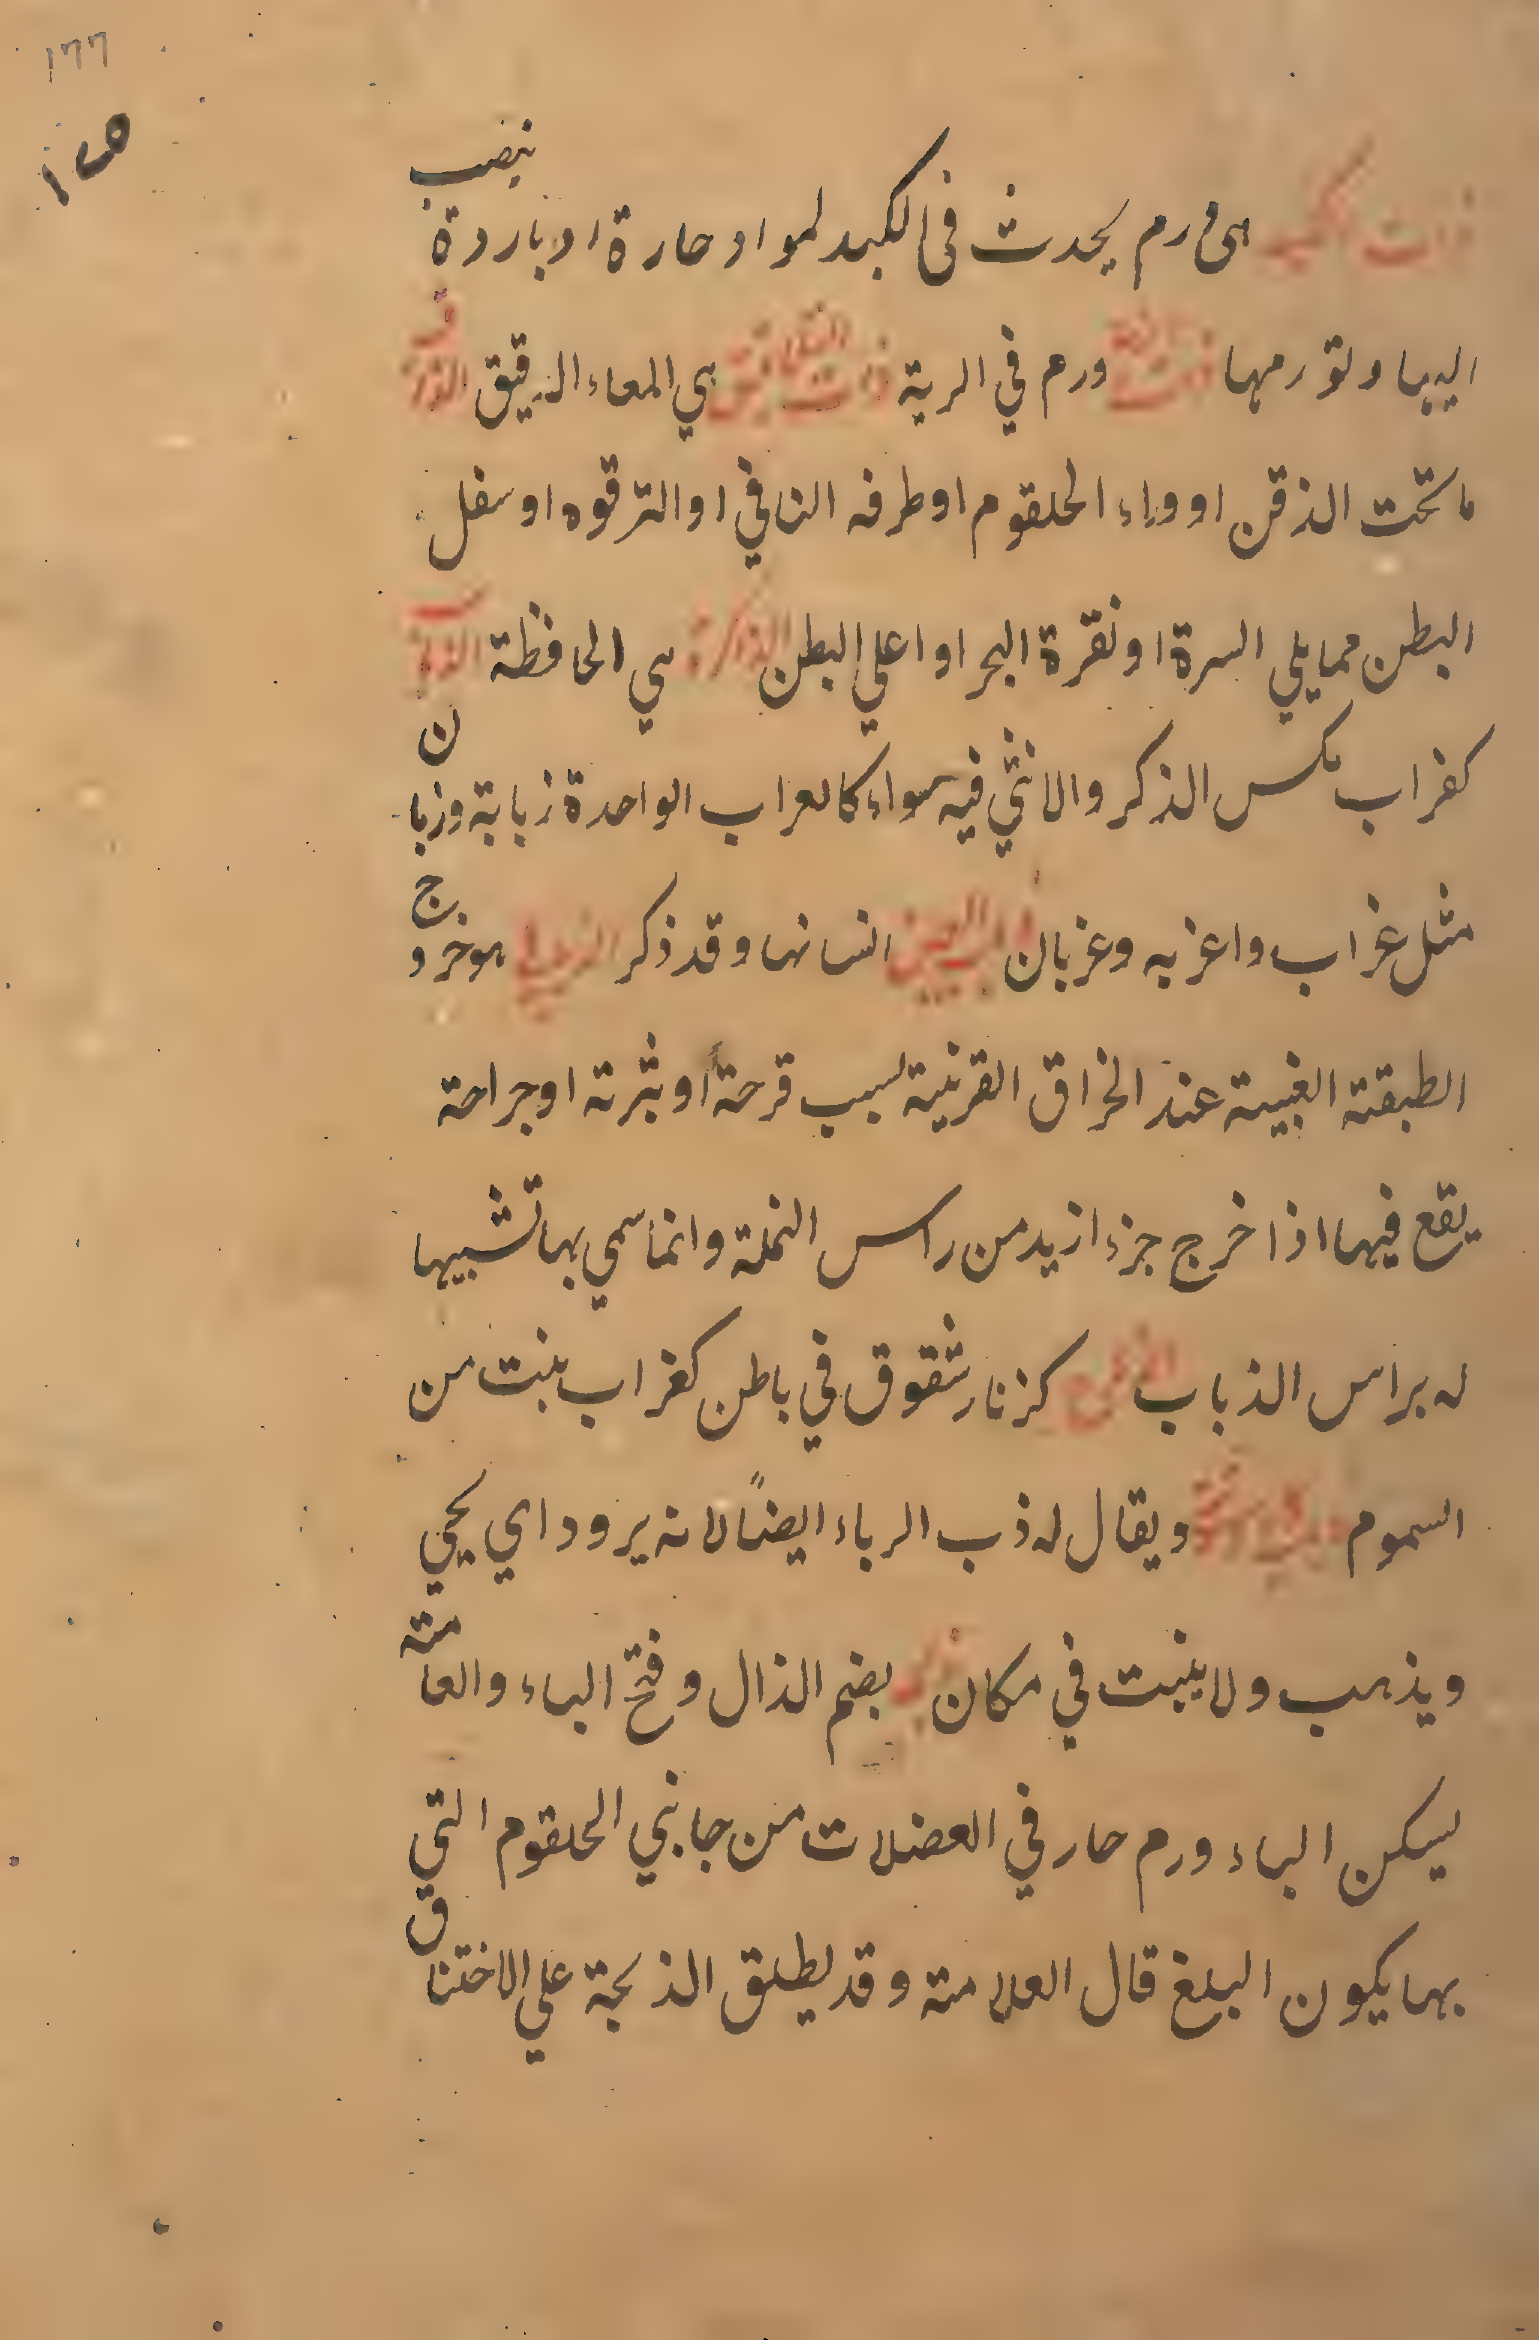 ١٦٦
١٤٥
ذات الكبد هى ورم يحدث فى الكبد لمواد حارة او باردة ينصب
اليها و تورمها ذات الرية ورم في الرية ذات هي المعاء الدقيق الذاقنة
ما تحت الذقن او وراء الحلقوم او طرفه الناتي او الترقوه او سفل
البطن مما يلي السرة او نقرة النحر او اعلي البطن الذاكرة هي الحافظة الذباب
كغراب مكس الذكر والانثي فيه سواء كالعراب الواحدة زبابة وزبان
مثل غراب واعزبه وغربان ذباب العين انسانها وقد ذكر الذبابي هو خروج
الطبقة العنبية عند انخراق القرنية لسبب قرحة او بثرة او جراحة
يقع فيها اذا خرج جزء ازيد من راس النملة وانما سمي بها تشبيها
له براس الذباب الذباح كزنار شقوق في باطن كغراب بنت من
السموم ويقال له ذب الرياء ايضاً لانه يرود اي يجي
ويذهب ولا ينبت في مكان ذبحه بضم الذال وفتح الباء والعامة
يسكن الباء ورم حار في العضلات من جانبي الحلقوم التي
بها يكون البلغ قال العلامة وقد يطلق الذبحة علي الاختناق